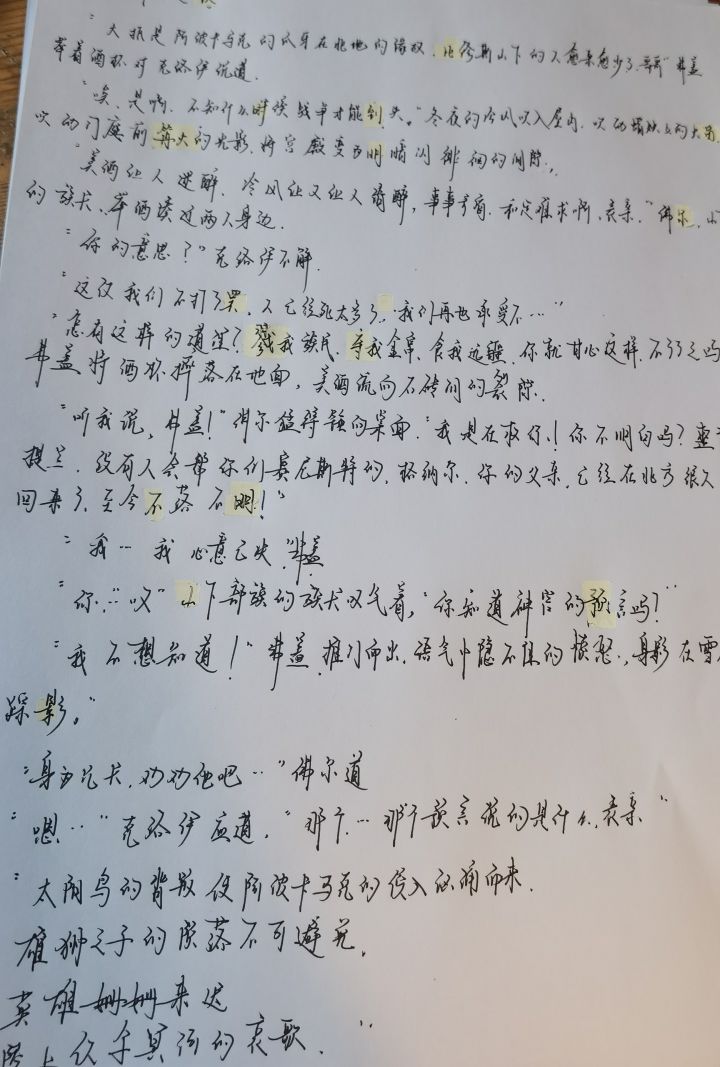 "大抵是阿波卡马克的爪牙在北地的得奴,比修斯山下的人愈来愈少了,哥哥"弗盖
举着酒杯对克洛伊说道.
"唉,是啊,不知什么时候战争才能到头。"冬夜的冷风吹入屋内,吹动
吹动门庭前篝火的光影,将宫殿变为明暗闪徘徊的间隙.
"美酒让人迷醉,冷风让又让人清醒,事事亏有,和定难求啊,表亲."佛尔,
的族长,举酒凑近两人身边.
"你的意思?"克洛伊不解.
"这仗我们不打了罢,人已经死太多了,我们再也承受不…"
"怎有这样的道理?戮我族民,夺我金帛,食我边疆,你就甘心这样,不了了之吗
弗盖将酒杯摔落在地面,美酒流向石砖间的裂隙.
"听我说,弗盖!"佛尔猛得锤向桌面."我是在救你!你不明白吗?
提兰,没有人会帮你们赛尼斯特的,格纳尔,你的父亲,已经在北方很久
回来了,至今不落不明!"
"我…我心意已决"弗盖
"你…"哎"山下部族的族长叹气着,"你知道神官的预言吗?"
"我不想知道!"弗盖,推门而出,语气中隐不住的愤怒,身影在雪
踪影。"
"身为兄长,劝劝他吧…"佛尔道
"嗯…"克洛伊应道,"那个…那个预言说的是什么,表亲"
"太阳鸟的背叛使阿波卡马克的侵入汹涌而来.
雄狮之子的陨落不可避免.
英雄姗姗来迟
踏上众矛冥河的哀歌."